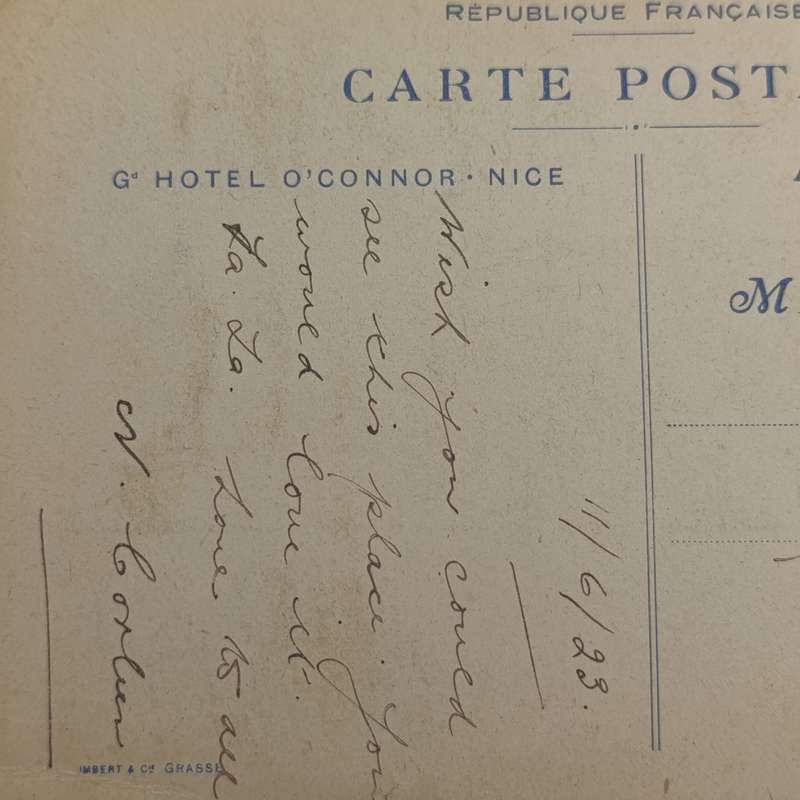 RÉPUBLIQUE FRANÇAISE
CARTE POSTA
Gd HOTEL O'CONNOR · NICE
M
11/6/23.
Wish you could
see this place. You
would love it.
La. La. Love to all
N.
IMBERT & Cie GRASSE